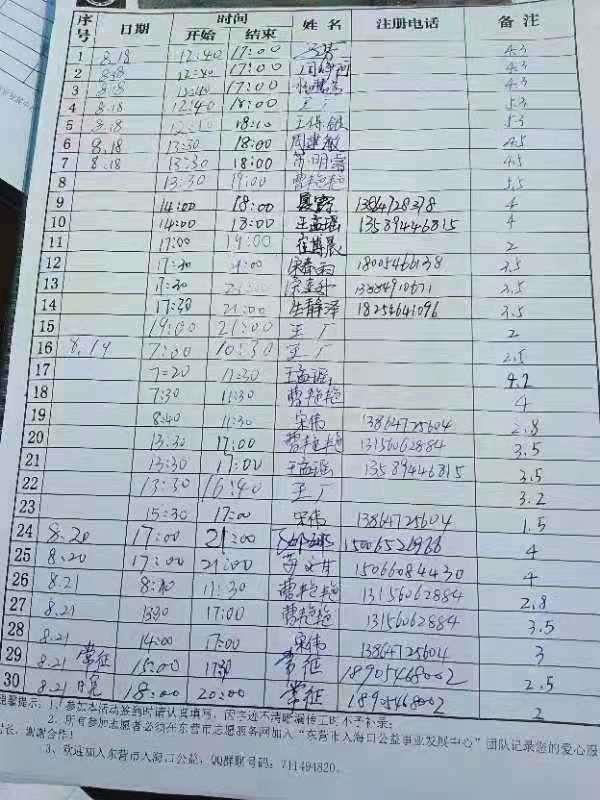 序号 日期 时间 开始 结束 姓名 注册电话 备注
1 8.18 12:40 17:00 4.3
2 8.18 12:40 17:00 4.3
3 8.18 12:40 17:00 4.3
4 8.18 12:40 18:00 王广 5.3
5 8.18 18:10 5.3
6 8.18 13:30 18:00 周建敏 4.5
7 8.18 13:30 18:00 4.5
8 13:30 19:00 曹艳艳 5.5
9 14:00 18:00 4
10 14:00 18:00 王孟瑶 13589446815 4
11 17:00 19:00 崔博晨 2
12 17:30 21:00 18005466138 3.5
13 17:30 21:00 3.5
14 17:30 21:00 生静泽 18254641096 3.5
15 19:00 21:00 王广 2
16 8.19 7:00 10:30 王广 2.5
17 7:20 11:30 王孟瑶 4.2
18 7:30 11:30 曹艳艳 4
19 8:40 11:30 宋伟 13864725604 2.8
20 13:30 17:00 曹艳艳 13156062884 3.5
21 13:30 17:00 王孟瑶 13589446815 3.5
22 13:30 16:40 王广 3.2
23 15:30 17:00 宋伟 13864725604 1.5
24 8.20 17:00 21:00 4
25 8.20 17:00 21:00 15066084430 4
26 8.21 8:30 11:30 曹艳艳 13156062884 2.8
27 8.21 1330 17:00 曹艳艳 13156062884 3.5
28 8.21 14:00 17:00 宋伟 13864725604 3
29 8.21 常征 15:00 17:30 常征 18905468002 2.5
30 8.21 18:00 20:00 常征 18905468002 2
温馨提示：1、参加本活动签到时请认真填写，因字迹不清晰漏传工时不予补录；
2、所有参加志愿者必须在东营市志愿服务网加入“东营市入海口公益事业发展中心”团队记录您的爱心服
时长，谢谢合作！
3、欢迎加入东营市入海口公益，QQ群聊号码：711494820。